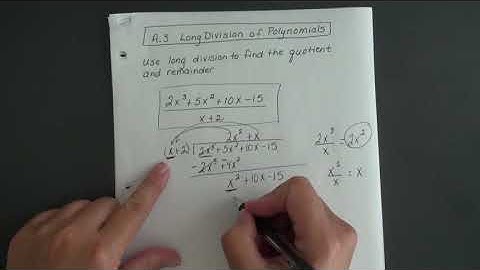 A.3 Long Division of Polynomials
Use long division to find the quotient
and remainder
2x³+5x²+10x-15
x+2
2x² + x
(x+2) 2x³+5x²+10x-15
-2x³+4x²
x²+10x-15
2x³/x = 2x²
x²/x = x